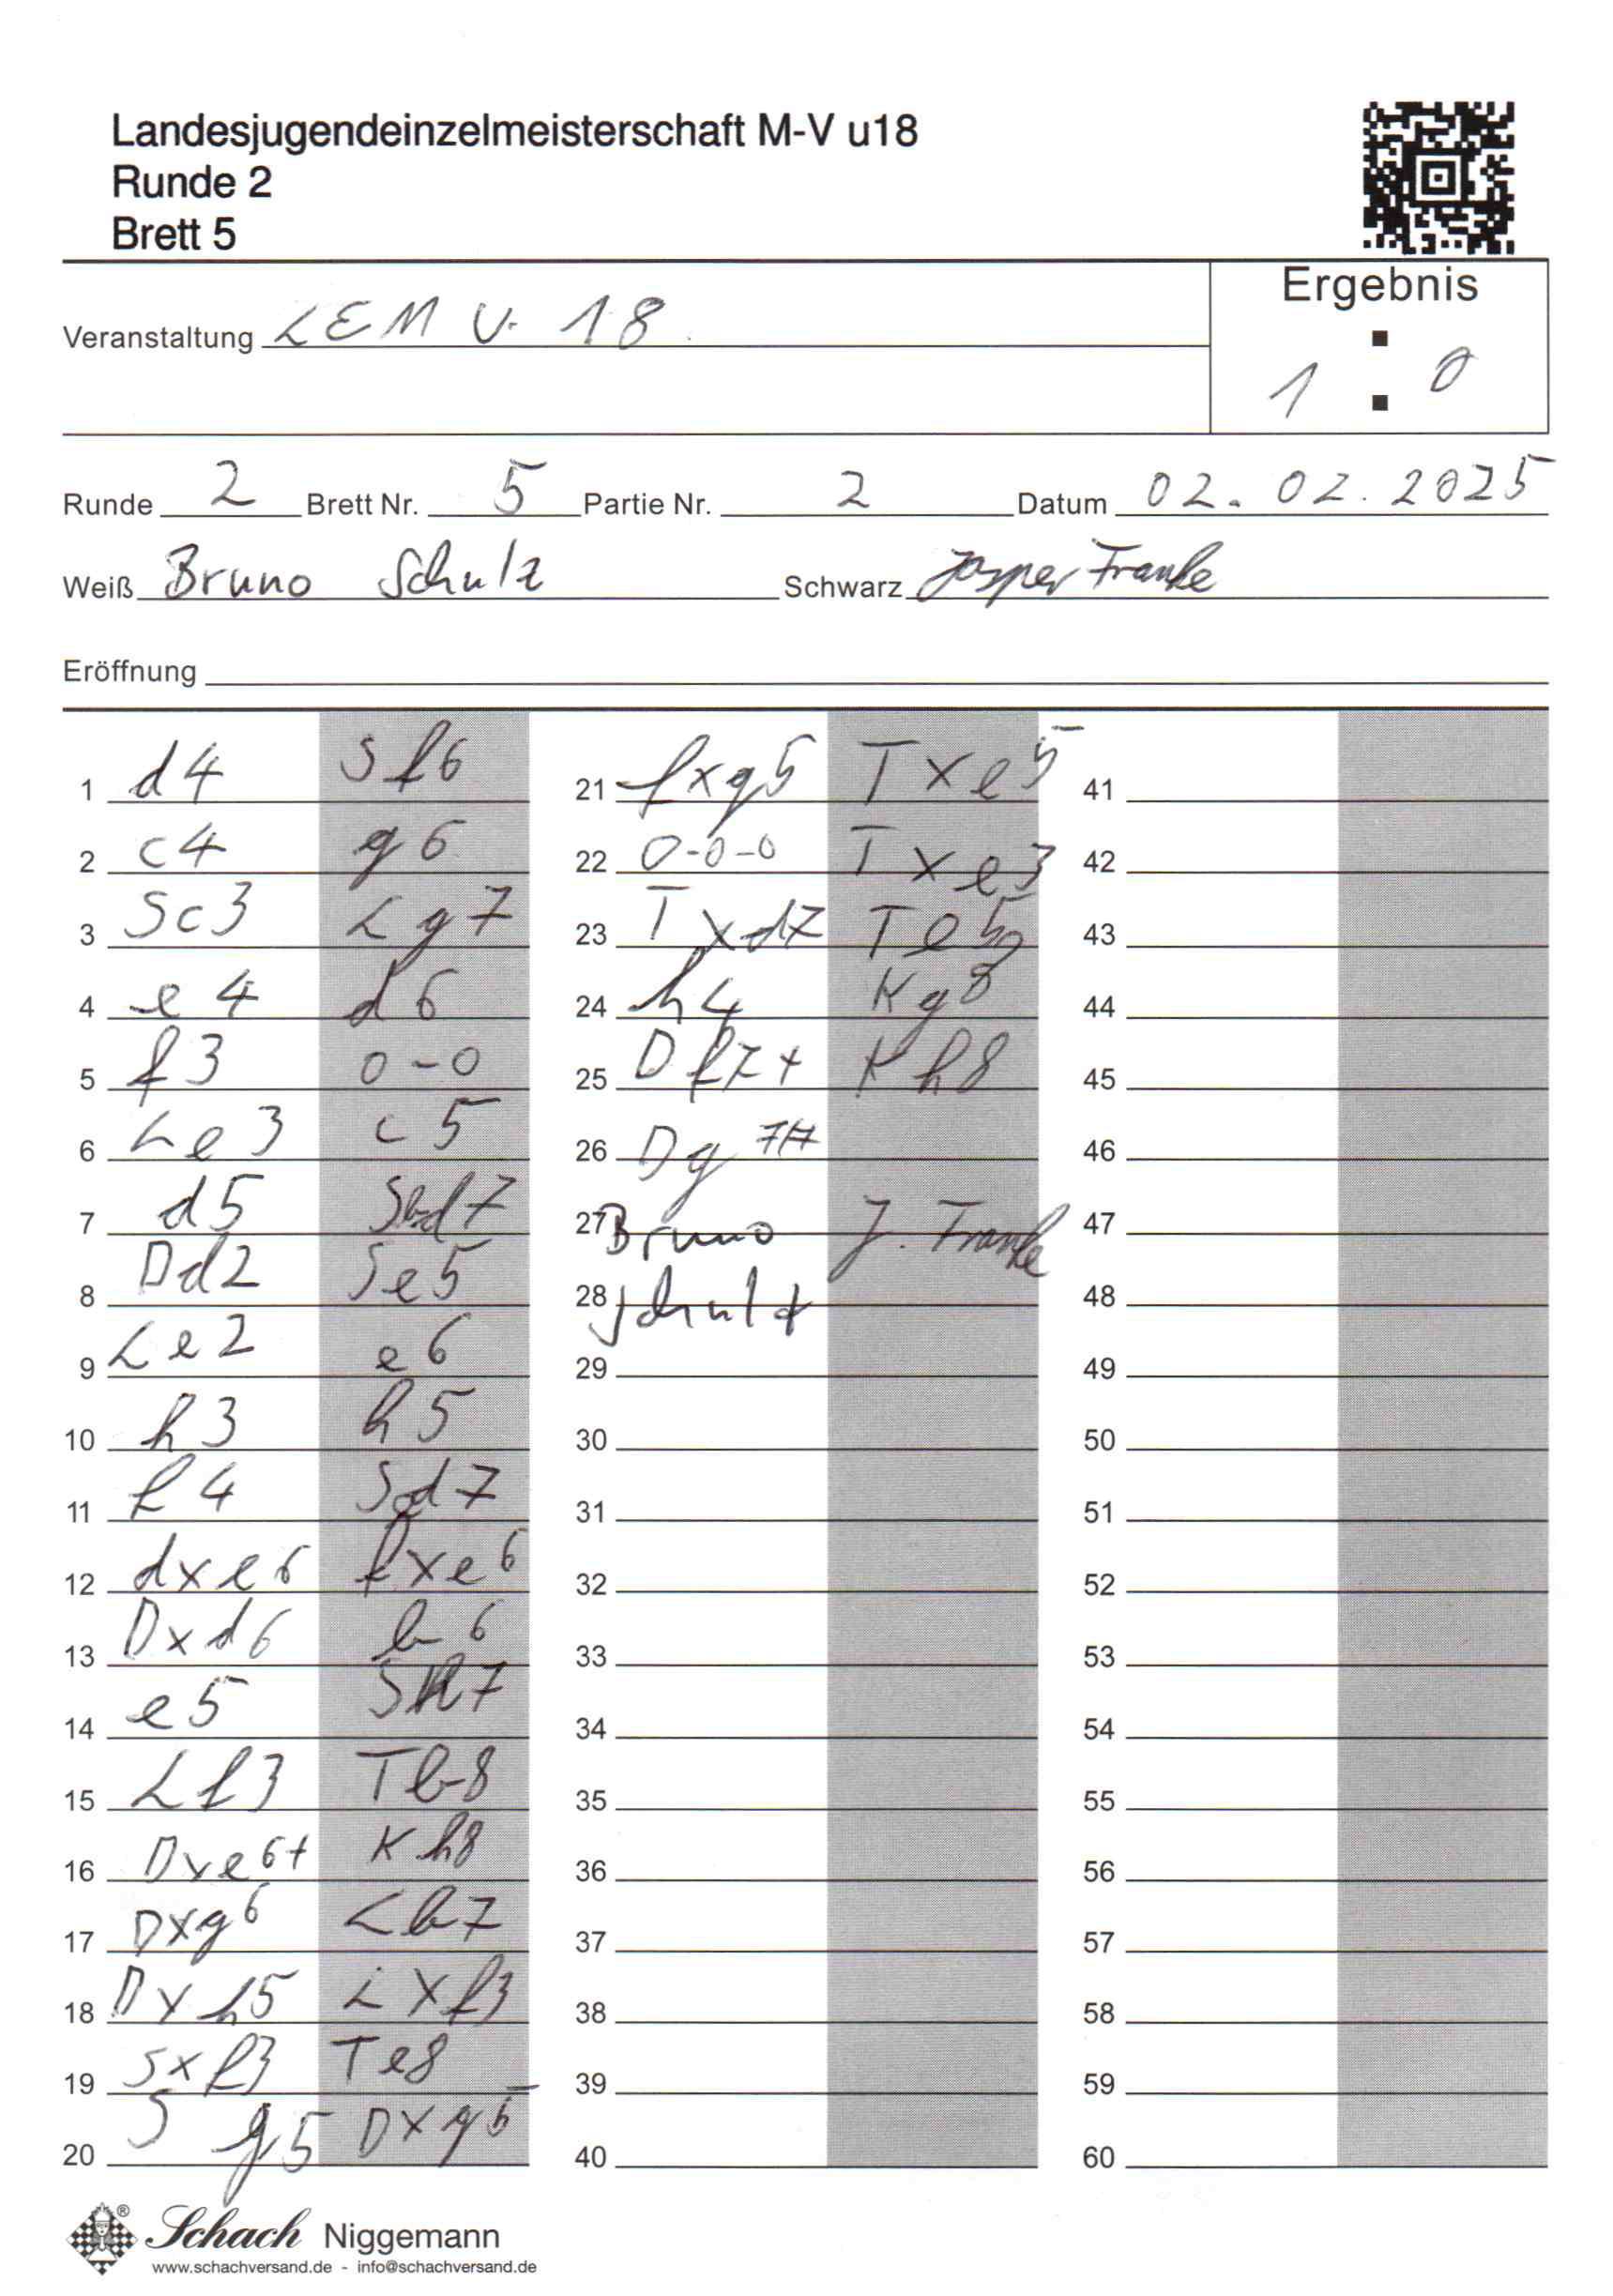 Landesjugendeinzelmeisterschaft M-V u18
Runde 2
Brett 5
Ergebnis
Veranstaltung LEM U. 18
1 : 0
Runde 2 Brett Nr. 5 Partie Nr. 2 Datum 02. 02. 2025
Weiß Bruno Schulz Schwarz Jasper Franke
Eröffnung
1 d4 Sf6 21 fxg5 Txe5 41
2 c4 g6 22 0-0-0 Txe3 42
3 Sc3 Lg7 23 Txd7 Te5 43
4 e4 d6 24 h4 Kg8 44
5 f3 0-0 25 Df7+ Kh8 45
6 Le3 c5 26 Dg7# 46
7 d5 Sbd7 27 Bruno J. Franke 47
8 Dd2 Se5 28 Schulz 48
9 Le2 e6 29 49
10 h3 h5 30 50
11 f4 Sed7 31 51
12 dxe6 fxe6 32 52
13 Dxd6 b6 33 53
14 e5 Sh7 34 54
15 Lf3 Tb8 35 55
16 Dxe6+ Kh8 36 56
17 Dxg6 Lb7 37 57
18 Dxh5 Lxf3 38 58
19 Sxf3 Te8 39 59
20 Sg5 Dxg5 40 60
Schach Niggemann
www.schachversand.de - info@schachversand.de